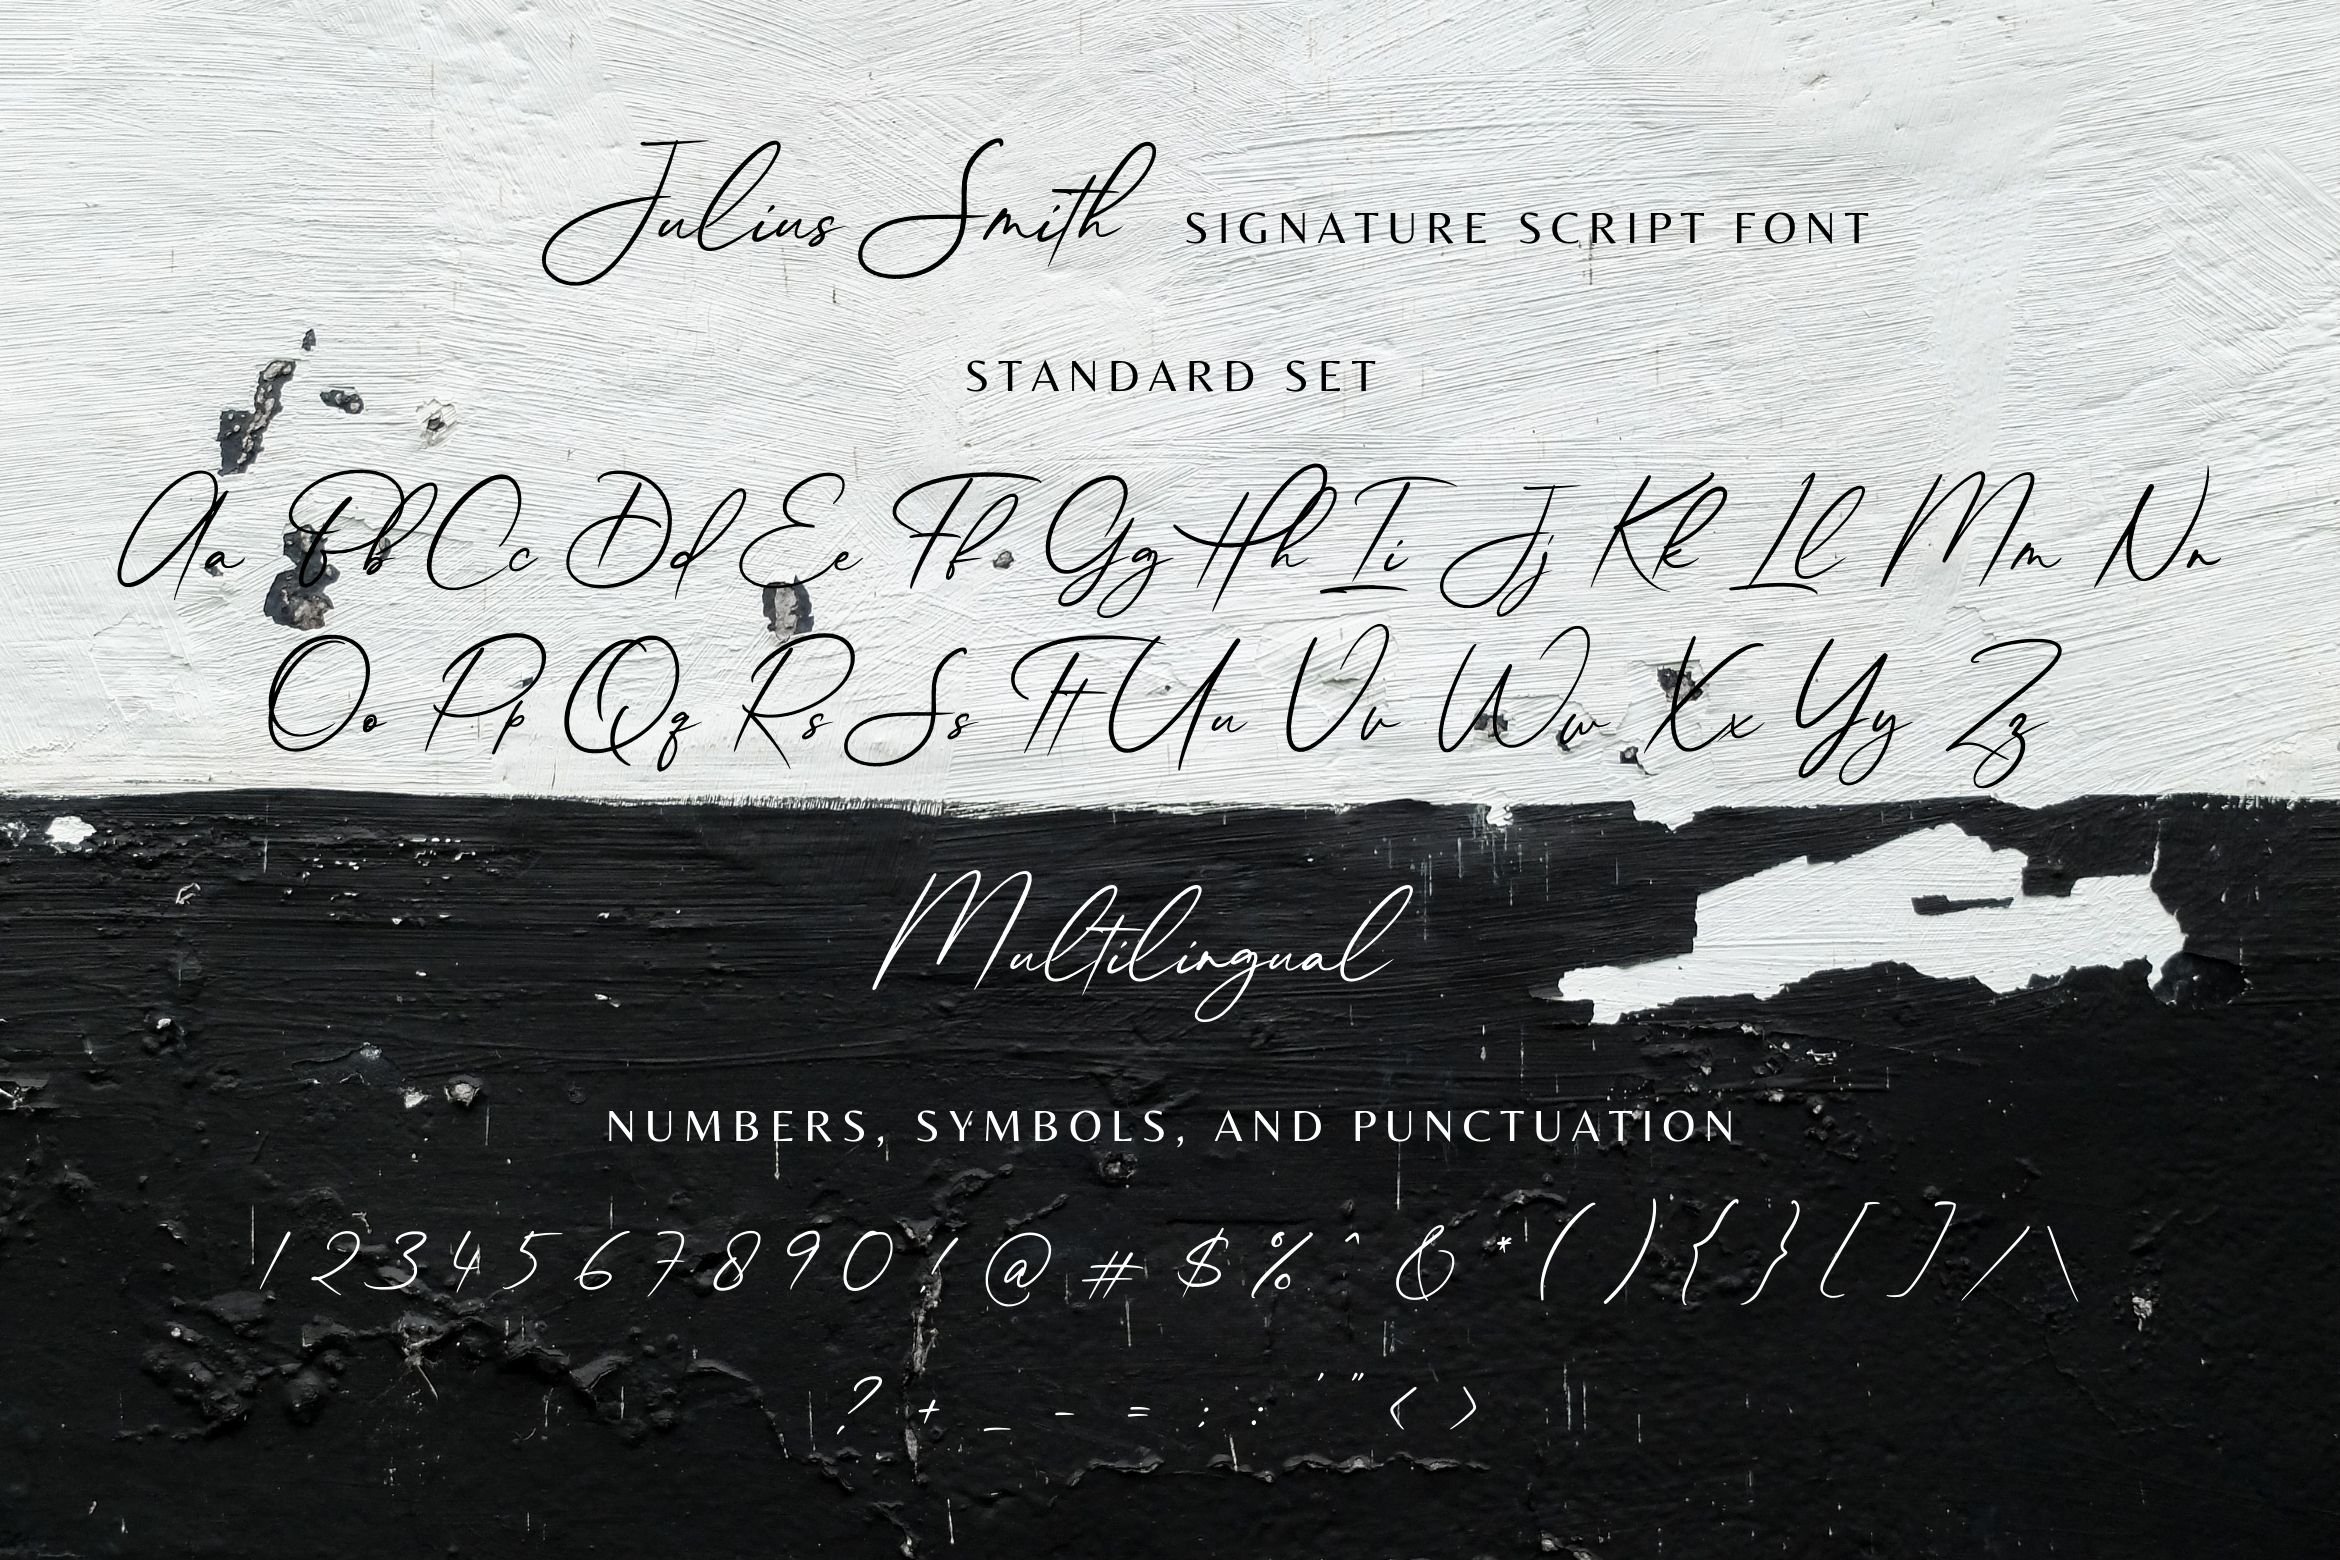 Julius Smith SIGNATURE SCRIPT FONT
STANDARD SET
Aa Bb Cc Dd Ee Ff Gg Hh Ii Jj Kk Ll Mm Nn
Oo Pp Qq Rs Ss Tt Uu Vv Ww Xx Yy Zz
Multilingual
NUMBERS, SYMBOLS, AND PUNCTUATION
1 2 3 4 5 6 7 8 9 0 ! @ # $ % ^ & * ( ) { } [ ] / \
? + _ - = ; : ' " < >